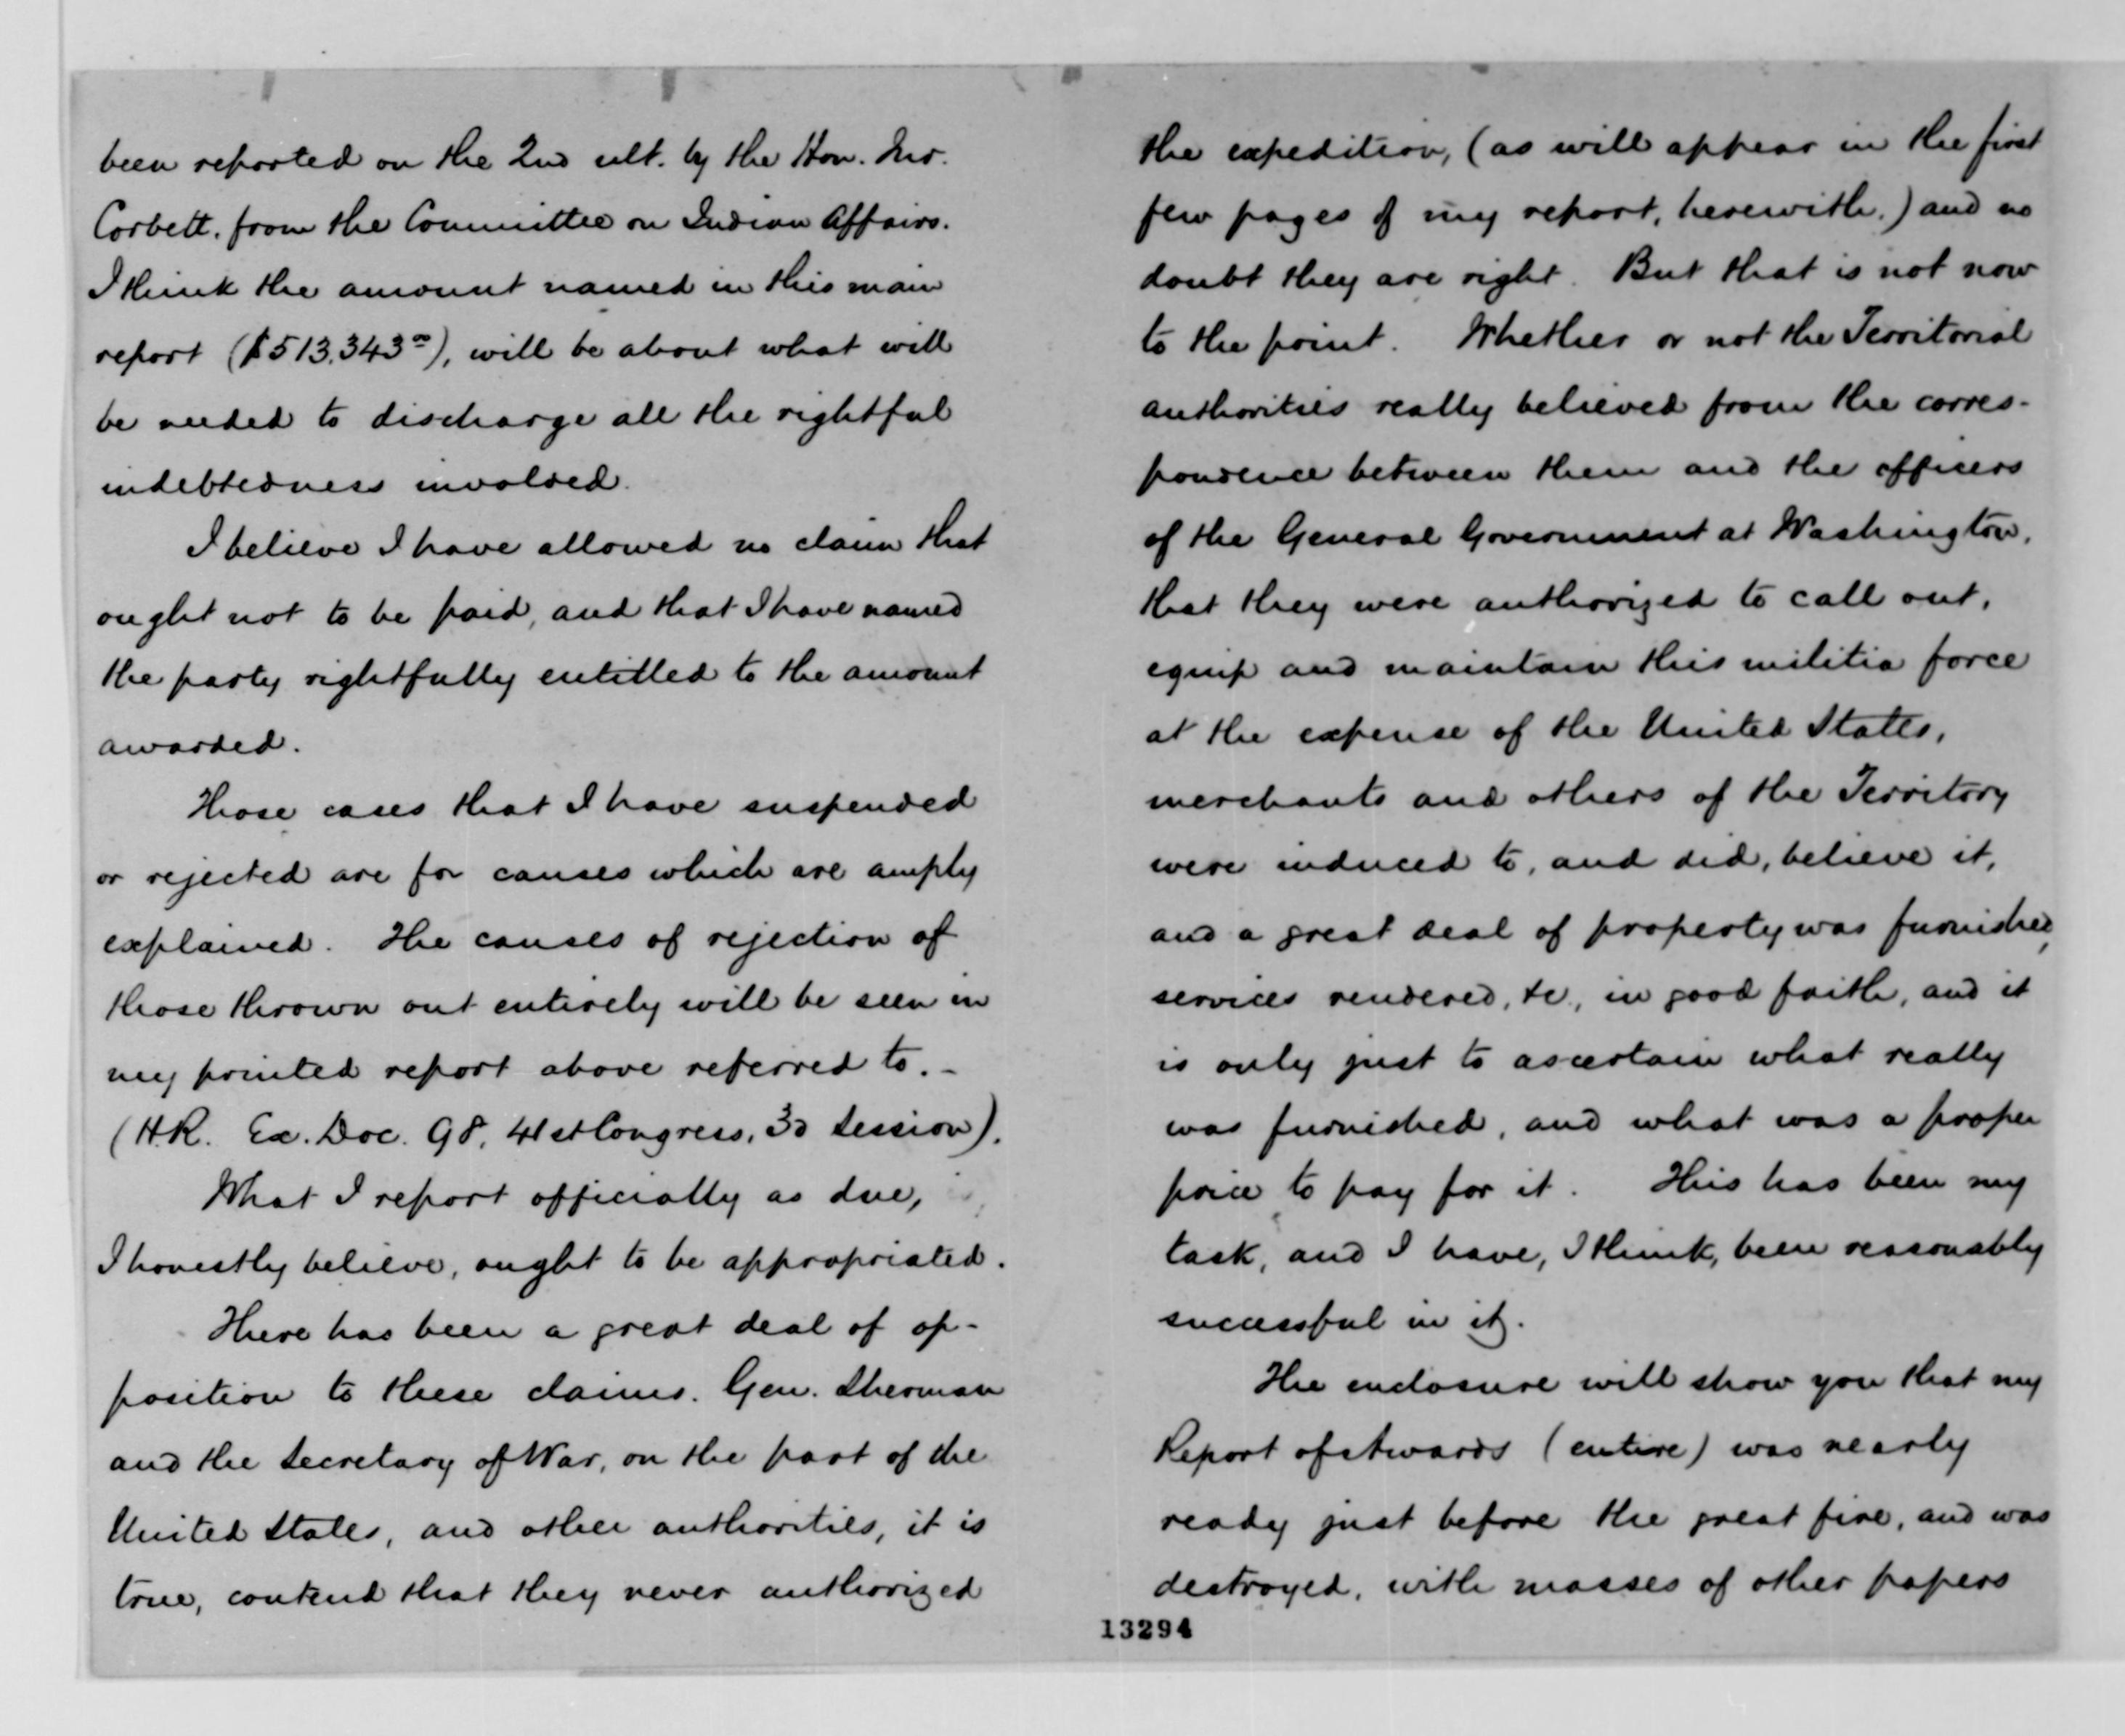 been reported on the 2nd ult. by the Hon. Mr.
Corbett, from the Committee on Indian Affairs.
I think the amount named in this main
report ($513,343 00), will be about what will
be needed to discharge all the rightful
indebtedness involved.
I believe I have allowed no claim that
ought not to be paid, and that I have named
the party rightfully entitled to the amount
awarded.
Those cases that I have suspended
or rejected are for causes which are amply
explained. The causes of rejection of
those thrown out entirely will be seen in
my printed report above referred to. -
(H.R. Ex. Doc. 98, 41st Congress, 3d Session).
What I report officially as due,
I honestly believe, ought to be appropriated.
There has been a great deal of op-
position to these claims. Gen. Sherman
and the Secretary of War, on the part of the
United States, and other authorities, it is
true, contend that they never authorized
the expedition, (as will appear in the first
few pages of my report, herewith,) and no
doubt they are right. But that is not now
to the point. Whether or not the Territorial
authorities really believed from the corres-
pondence between them and the officers
of the General Government at Washington,
that they were authorized to call out,
equip and maintain this militia force
at the expense of the United States,
merchants and others of the Territory
were induced to, and did, believe it,
and a great deal of property was furnished,
services rendered, &c., in good faith, and it
is only just to ascertain what really
was furnished, and what was a proper
price to pay for it. This has been my
task, and I have, I think, been reasonably
successful in it.
The enclosure will show you that my
Report of Awards (entire) was nearly
ready just before the great fire, and was
destroyed, with masses of other papers
13294